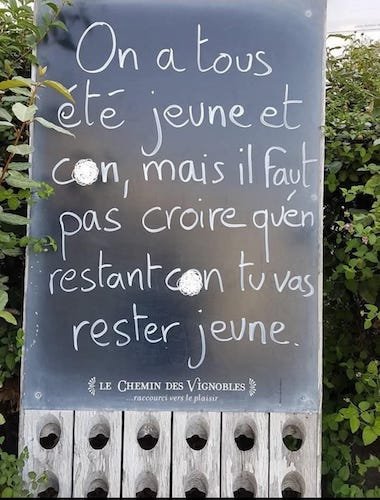 On a tous
été jeune et
con, mais il faut
pas croire qu'en
restant con tu vas
rester jeune.
LE CHEMIN DES VIGNOBLES
...raccourci vers le plaisir